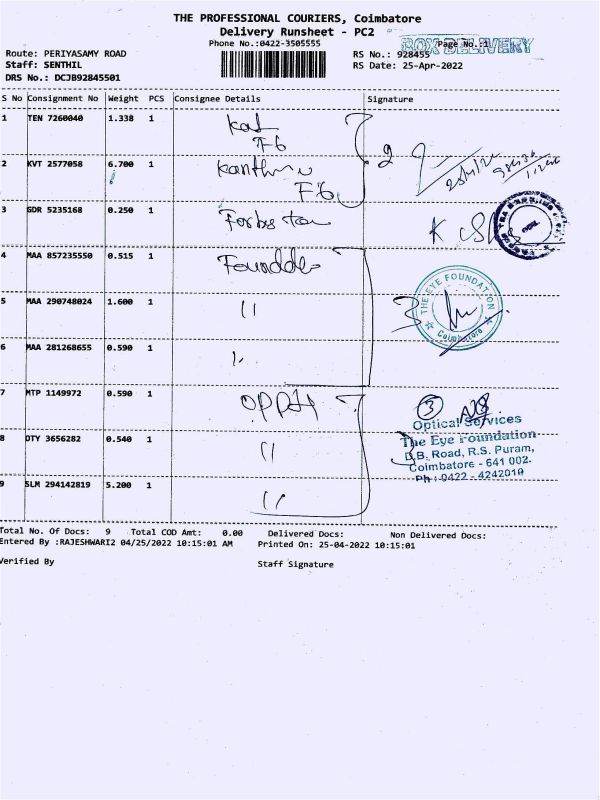 THE PROFESSIONAL COURIERS, Coimbatore
Delivery Runsheet - PC2
Phone No.:0422-3505555
BOX DELIVERY
Page No.:1
Route: PERIYASAMY ROAD
RS No.: 928455
Staff: SENTHIL
RS Date: 25-Apr-2022
DRS No.: DCJB92845501
S No Consignment No Weight PCS Consignee Details Signature
1 TEN 7260040 1.338 1
F6
2 KVT 2577058 6.700 1
F6
2
3 GDR 5235168 0.250 1
4 MAA 857235550 0.515 1
5 MAA 290748024 1.600 1 "
3
THE EYE FOUNDATION
Coimbatore
6 MAA 281268655 0.590 1
7 MTP 1149972 0.590 1
3
8 OTY 3656282 0.540 1 "
Optical Services
The Eye Foundation
D.B. Road, R.S. Puram,
Coimbatore - 641 002.
Ph : 0422 - 4242019
9 SLM 294142819 5.200 1 "
Total No. Of Docs: 9 Total COD Amt: 0.00 Delivered Docs: Non Delivered Docs:
Entered By :RAJESHWARI2 04/25/2022 10:15:01 AM Printed On: 25-04-2022 10:15:01
Verified By
Staff Signature